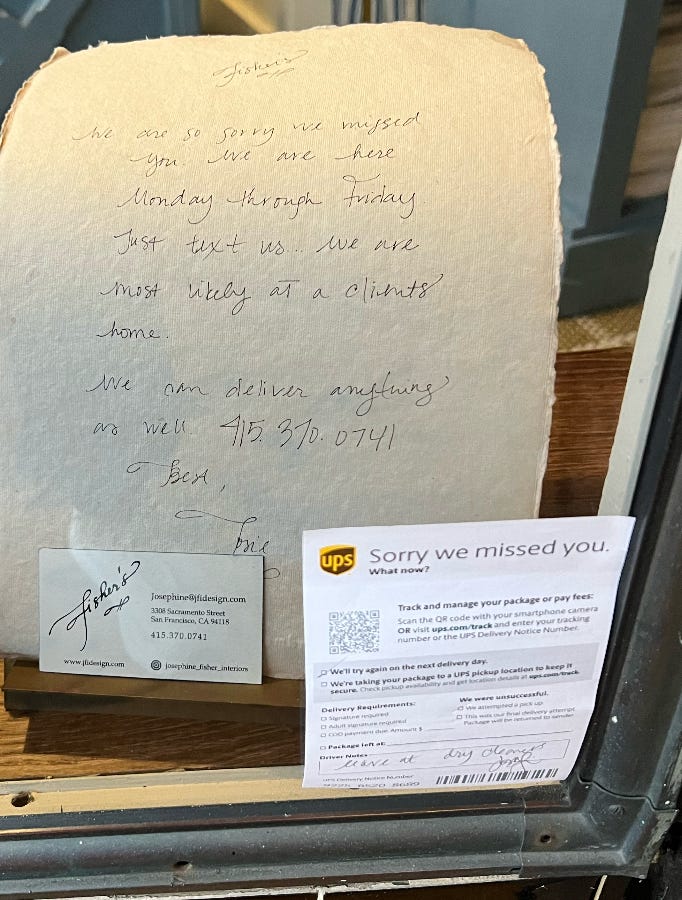 Fisher's
We are so sorry we missed
you. We are here
Monday through Friday.
Just text us... We are
most likely at a clients
home.
We can deliver anything
as well. 415.370.0741
Best,
Josie
fisher's
Josephine@jfidesign.com
3308 Sacramento Street
San Francisco, CA 94118
415.370.0741
www.jfidesign.com
josephine_fisher_interiors
ups
Sorry we missed you.
What now?
Track and manage your package or pay fees:
Scan the QR code with your smartphone camera
OR visit ups.com/track and enter your tracking
number or the UPS Delivery Notice Number.
We'll try again on the next delivery day.
We're taking your package to a UPS pickup location to keep it
secure. Check pickup availability and get location details at ups.com/track.
Delivery Requirements:
Signature required
Adult signature required
COD payment due Amount $
We were unsuccessful.
We attempted a pick up
This was our final delivery attempt.
Package will be returned to sender.
Package left at:
Driver Notes
leave at dry cleaners
UPS Delivery Notice Number